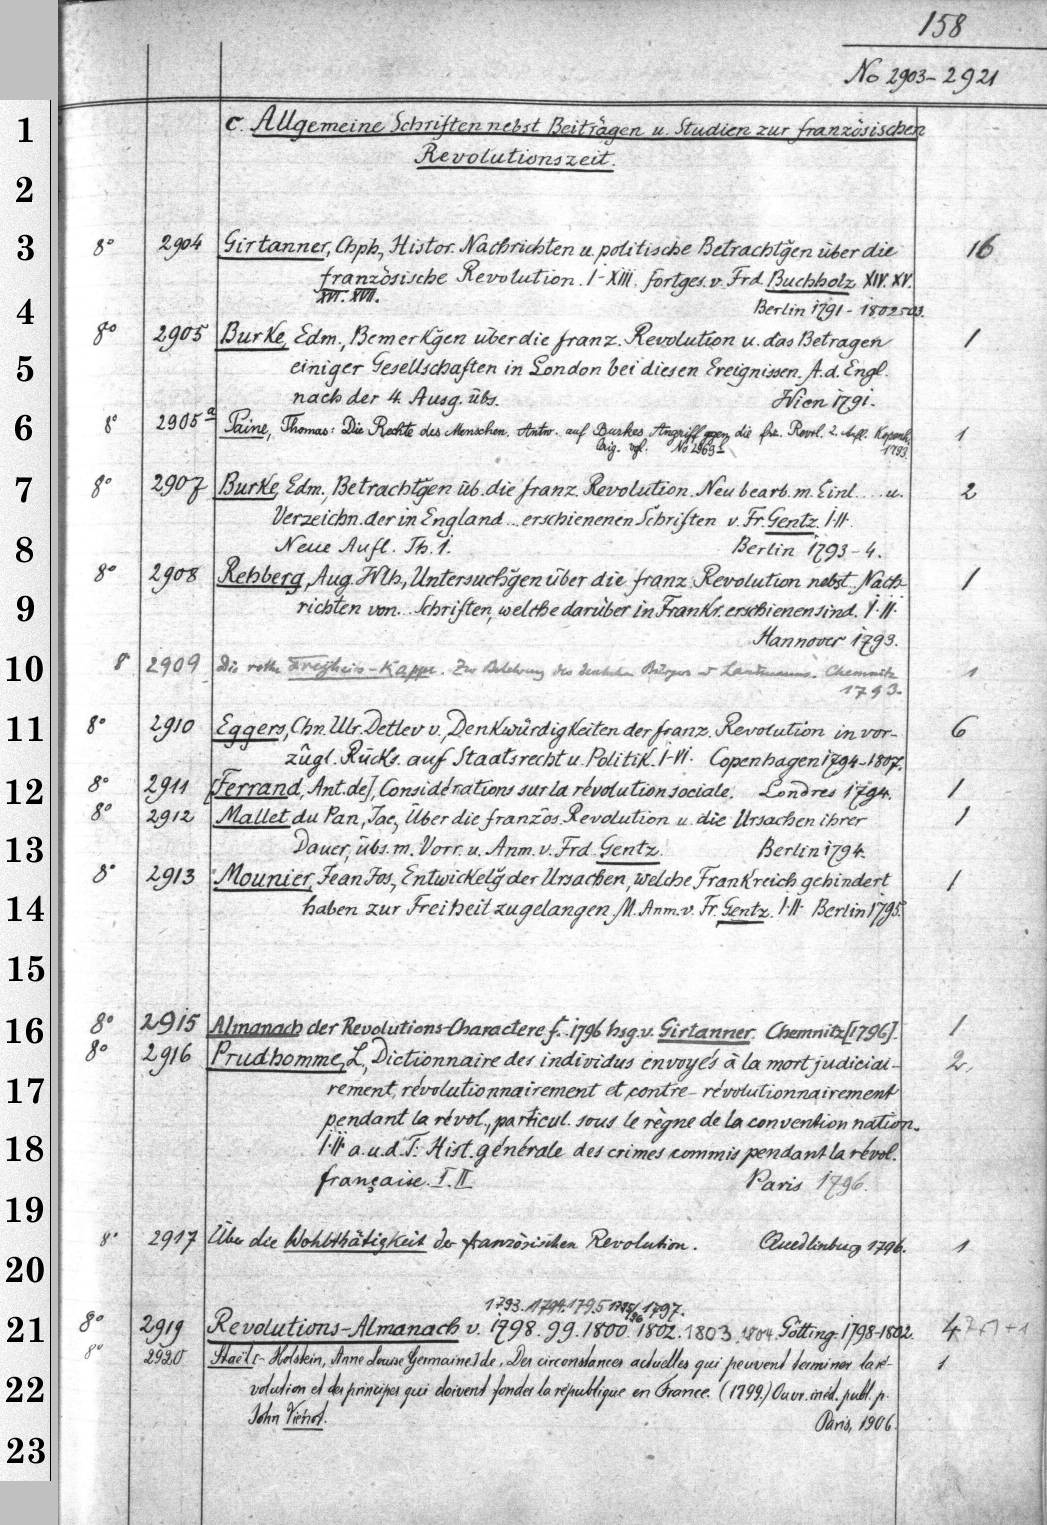 158
No 2903-2921
1
c. Allgemeine Schriften nebst Beiträgen u. Studien zur französischen
Revolutionszeit.
2
3
8° 2904 Girtanner, Chph., Histor. Nachrichten u. politische Betrachtgn̄ über die 16
französische Revolution. I-XIII. fortges. v. Frd. Buchholz XIV. XV.
XVI. XVII.
4
Berlin 1791-1802
8° 2905 Burke, Edm., Bemerkgn̄ über die franz. Revolution u. das Betragen 1
5
einiger Gesellschaften in London bei diesen Ereignissen. A. d. Engl.
nach der 4. Ausg. übs. Wien 1791.
6
8° 2905a Paine, Thomas: Die Rechte des Menschen. Antw. auf Burkes Angriff gegen die frz. Revol. 2. Aufl. Kopenh. 1
Orig. vgl. No 1793.
7
8° 2907 Burke, Edm., Betrachtgn̄ üb. die franz. Revolution. Neu bearb. m. Einl. ... u. 2
Verzeichn. der in England ... erschienenen Schriften v. Fr. Gentz. I.II.
8
Neue Aufl. Th. 1. Berlin 1793-4.
8° 2908 Rehberg, Aug. Wlh., Untersuchgn̄ über die franz. Revolution nebst Nach- 1
9
richten von... Schriften, welche darüber in Frankr. erschienen sind. I.II.
Hannover 1793.
10
8° 2909 Die rothe Freyheits-Kappe. Zur Belehrung des deutschen Bürgers u Landmanns. Chemnitz 1
1793.
11
8° 2910 Eggers, Chn. Ulr. Detlev v., Denkwürdigkeiten der franz. Revolution in vor- 6
zügl. Rücks. auf Staatsrecht u. Politik. I-VI. Copenhagen 1794-1807.
12
8° 2911 [Ferrand, Ant. de], Considérations sur la révolution sociale. Londres 1794. 1
8° 2912 Mallet du Pan, Jac., Über die französ. Revolution u. die Ursachen ihrer 1
13
Dauer, übs. m. Vorr. u. Anm. v. Frd. Gentz. Berlin 1794.
8° 2913 Mounier, Jean Jos., Entwickelḡ der Ursachen, welche Frankreich gehindert 1
14
haben zur Freiheit zu gelangen. M. Anm. v. Fr. Gentz. I.II. Berlin 1795.
15
16
8° 2915 Almanach der Revolutions-Charactere f. 1796 hsg. v. Girtanner. Chemnitz [1796]. 1
8° 2916 Prudhomme, L., Dictionnaire des individus envoyés à la mort judiciai- 2.
17
rement, révolutionnairement et contre-révolutionnairement
pendant la révol., particul. sous le règne de la convention nation.
18
I.II a. u. d. T.: Hist. générale des crimes commis pendant la révol.
française. I. II Paris 1796.
19
8° 2917 Über die Wohlthätigkeit der französischen Revolution. Quedlinburg 1796. 1
20
1793. 1794. 1795 1795/96 1797.
21
8° 2919 Revolutions-Almanach v. 1798. 99. 1800. 1802. 1803. 1804. Götting. 1798-1802. 4
8° 2920 Staël[-Holstein, Anne Louise Germaine] de, Des circonstances actuelles qui peuvent terminer la ré- 1
22
volution et des principes qui doivent fonder la république en France. (1799.) Ouvr. inéd. publ. p.
John Viénot. Paris, 1906.
23